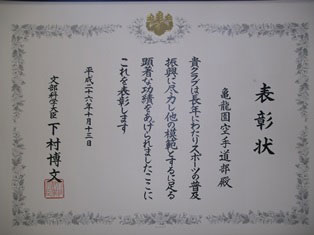 表彰状
亀龍園空手道部殿
貴クラブは長年にわたりスポーツの普及
振興に尽力し他の模範とするに足る
顕著な功績をあげられましたここに
これを表彰します
平成二十六年十月十三日
文部科学大臣 下村博文